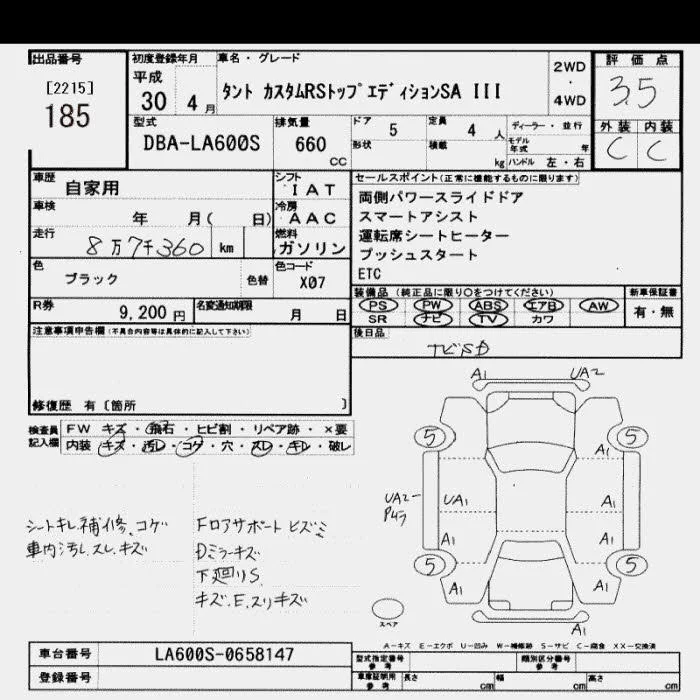 出品番号
[2215]
185
初度登録年月
平成
30 4月
車名・グレード
タント カスタムRSトップエディションSA III
2WD
・
4WD
評価点
3.5
外装 内装
C C
型式
DBA-LA600S
排気量
660
cc
ドア 5
形状
定員 4 人
積載 kg
ディーラー・並行
モデル年式 年
ハンドル 左・右
車歴 自家用
車検 年 月( 日)
走行 8万7千360 km
シフト
IAT
冷房
AAC
燃料
ガソリン
色 ブラック 色替
色コード
X07
R券 9,200 円
名変通知期限 月 日
セールスポイント(正常に機能するものに限ります)
両側パワースライドドア
スマートアシスト
運転席シートヒーター
プッシュスタート
ETC
装備品(純正品に限り○をつけてください)
PS PW ABS エアB AW
SR ナビ TV カワ
新車保証書
有・無
後日品
ナビSD
注意事項申告欄(不具合内容等は具体的に記入して下さい)
修復歴 有〔箇所 〕
検査員記入欄
FW キズ・飛石・ヒビ割・リペア跡・×要
内装 キズ・汚レ・コゲ・穴・スレ・キレ・破レ
シートキレ補修、コゲ
車内汚し、スレ、キズ
Fロアサポートヒズミ
Dミラーキズ
下廻りS
キズ.E.スリキズ
A1 UA2
5 5
A1
UA2
UA1 A1
A1 A1
5 5
A1 A1
A1
スペア
A-キズ E-エクボ U-凹み W-補修跡 S-サビ C-腐食 XX-交換済
車台番号 LA600S-0658147
登録番号
型式指定番号
参考
類別区分番号
参考
車庫証明用
参考
長さ cm
幅 cm
高さ cm